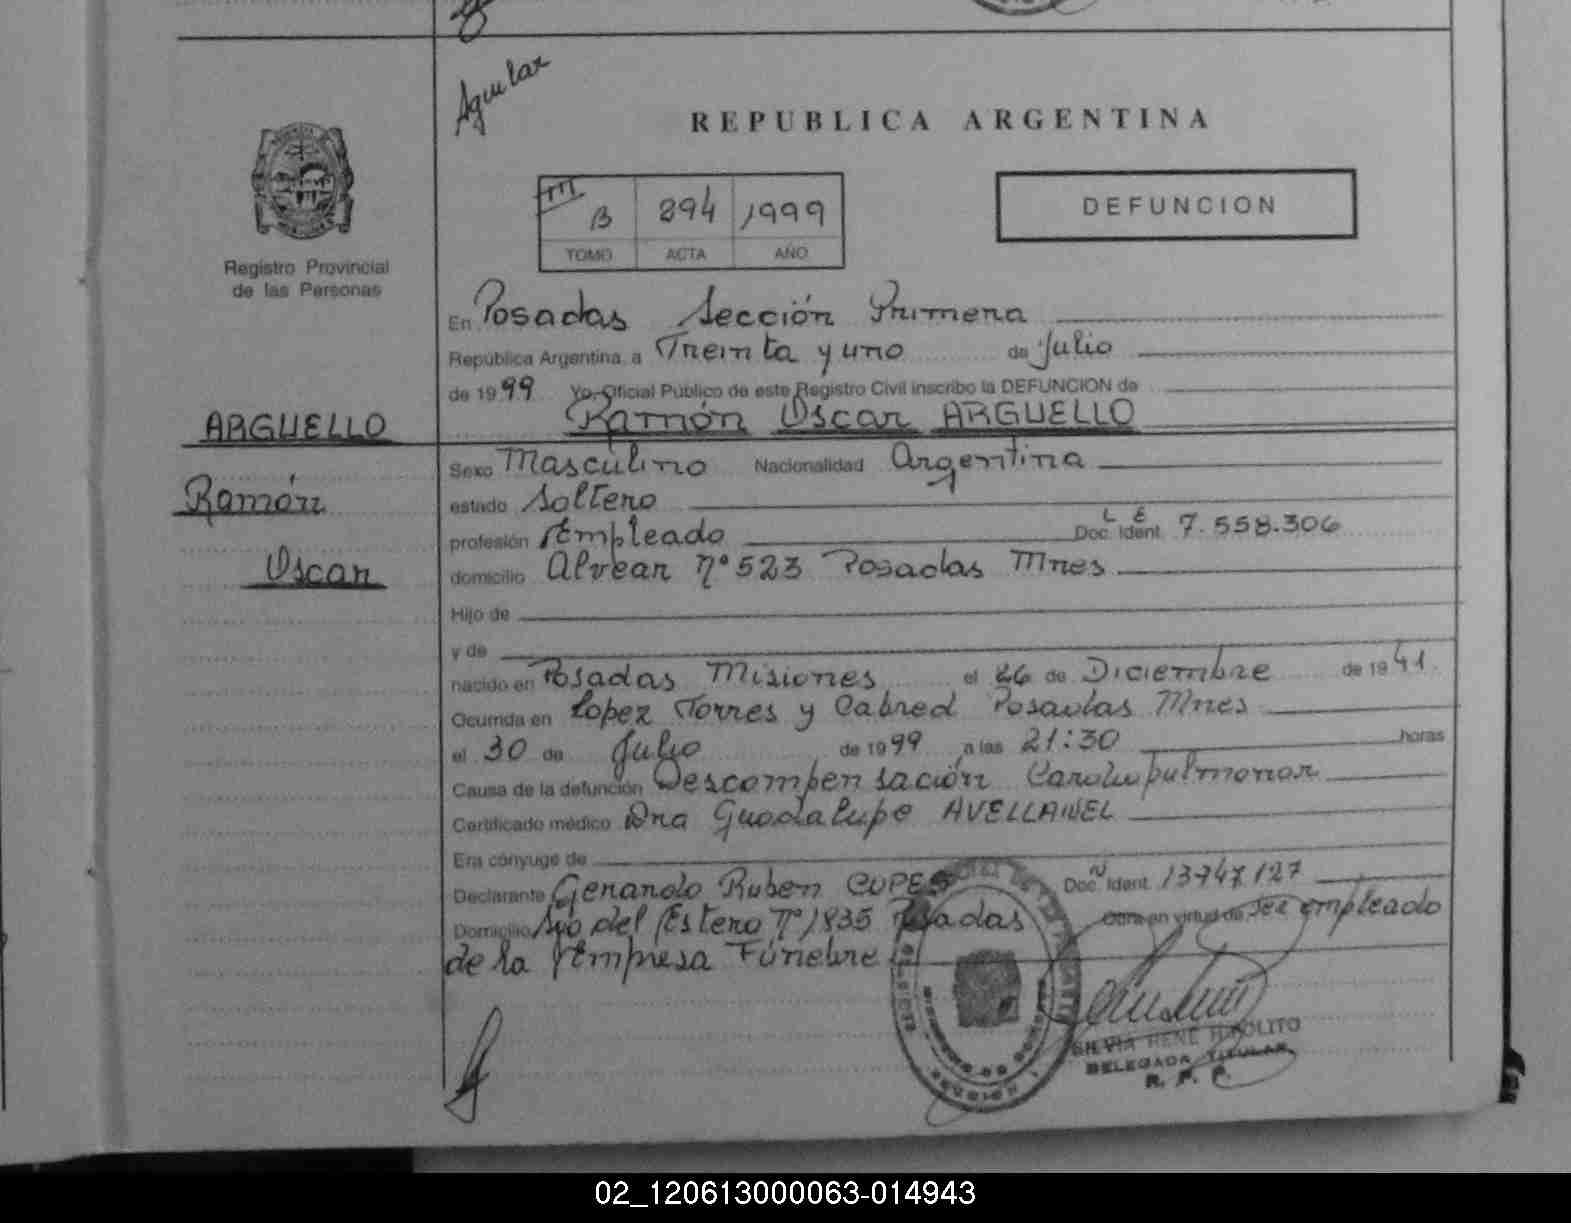 Aguilar
REPUBLICA ARGENTINA
III B 894 1999
TOMO ACTA AÑO
DEFUNCION
Registro Provincial
de las Personas
En Posadas Sección Primera
República Argentina, a Treinta y uno de Julio
de 1999 Yo, Oficial Público de este Registro Civil inscribo la DEFUNCION de
Ramón Oscar ARGUELLO
ARGUELLO
Ramón
Oscar
Sexo Masculino Nacionalidad Argentina
estado Soltero
profesión Empleado Doc. Ident. L E 7.558.306
domicilio Alvear Nº 523 Posadas Mnes
Hijo de
y de
nacido en Posadas Misiones el 26 de Diciembre de 1941.
Ocurrida en Lopez Torres y Cabred Posadas Mnes
el 30 de Julio de 1999 a las 21:30 horas
Causa de la defunción Descompensación Cardiopulmonar
Certificado médico Dra Guadalupe AVELLANEL
Era cónyuge de
Declarante Gerardo Ruben CUPES Doc. Ident. 13747127
Domicilio Sgo del Estero Nº 1835 Posadas Obra en virtud de ser empleado
de la Empresa Fúnebre
SILVIA RENE HIPOLITO
DELEGADA TITULAR
R. P. P.
02_120613000063-014943